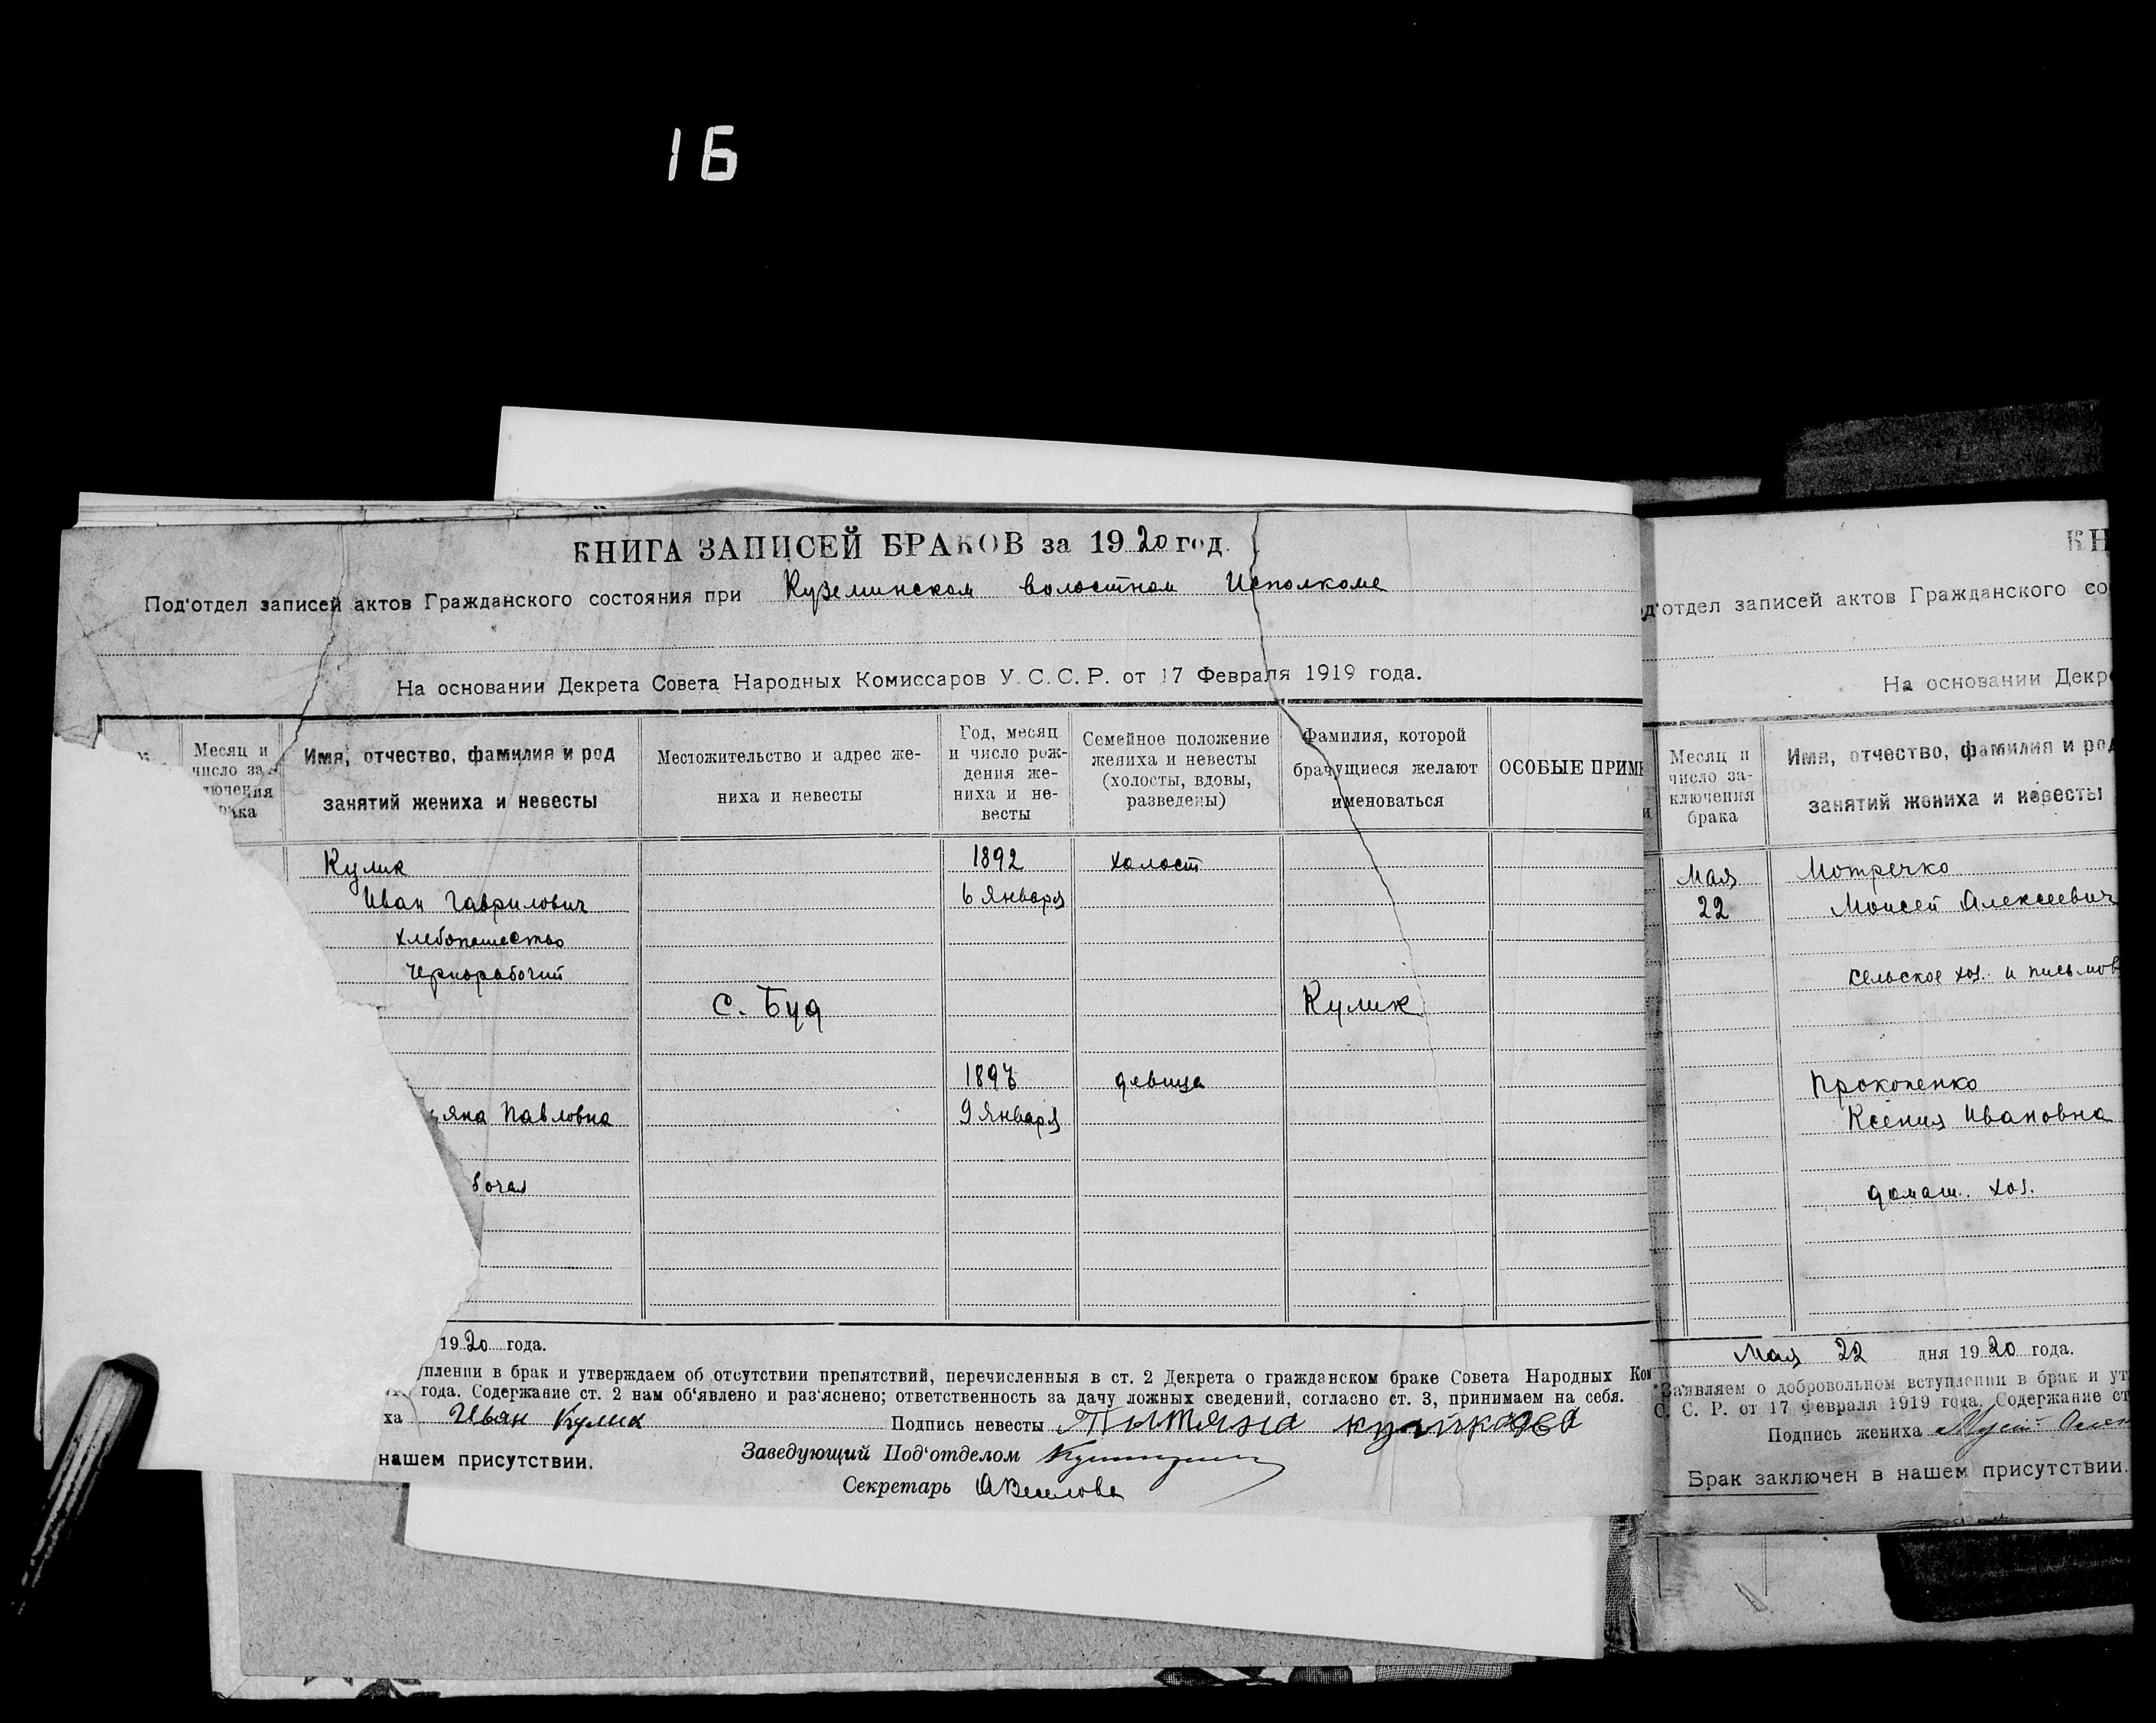 16
КНИГА ЗАПИСЕЙ БРАКОВ за 1920 год.
Под'отдел записей актов Гражданского состояния при Куземинском волостном Исполкоме
На основании Декрета Совета Народных Комиссаров У.С.С.Р. от 17 Февраля 1919 года.
Месяц и число за- ключения
Имя, отчество, фамилия и род занятий жениха и невесты
Местожительство и адрес же- ниха и невесты
Год, месяц и число рож- дения же- ниха и не- весты
Семейное положение жениха и невесты (холосты, вдовы, разведены)
Фамилия, которой брачущиеся желают именоваться
ОСОБЫЕ ПРИМ
Кулик 1892 холост
Иван Гаврилович 6 Января
хлебопашество
Чернорабочий
С. Буд Кулик
девица
яна Павловна 9 Января
бочая
1920 года.
уплении в брак и утверждаем об отсутствии препятствий, перечисленныя в ст. 2 Декрета о гражданском браке Совета Народных Ком
года. Содержание ст. 2 нам об'явлено и раз'яснено; ответственность за дачу ложных сведений, согласно ст. 3, принимаем на себя.
ха Иван Кулик Подпись невесты
нашем присутствии. Заведующий Под'отделом
Секретарь
КН
од'отдел записей актов Гражданского со
На основании Декр
Месяц и число за- ключения брака
Имя, отчество, фамилия и род занятий жениха и невесты
Мая Мотречко
22 Моисей Алексеевич
сельское хоз. и письмов
Прокопенко
Ксения Ивановна
домаш. хоз.
Мая 22 дня 1920 года.
Заявляем о добровольном вступлении в брак и ут
С. С. Р. от 17 Февраля 1919 года. Содержание ст
Подпись жениха
Брак заключен в нашем присутствии.